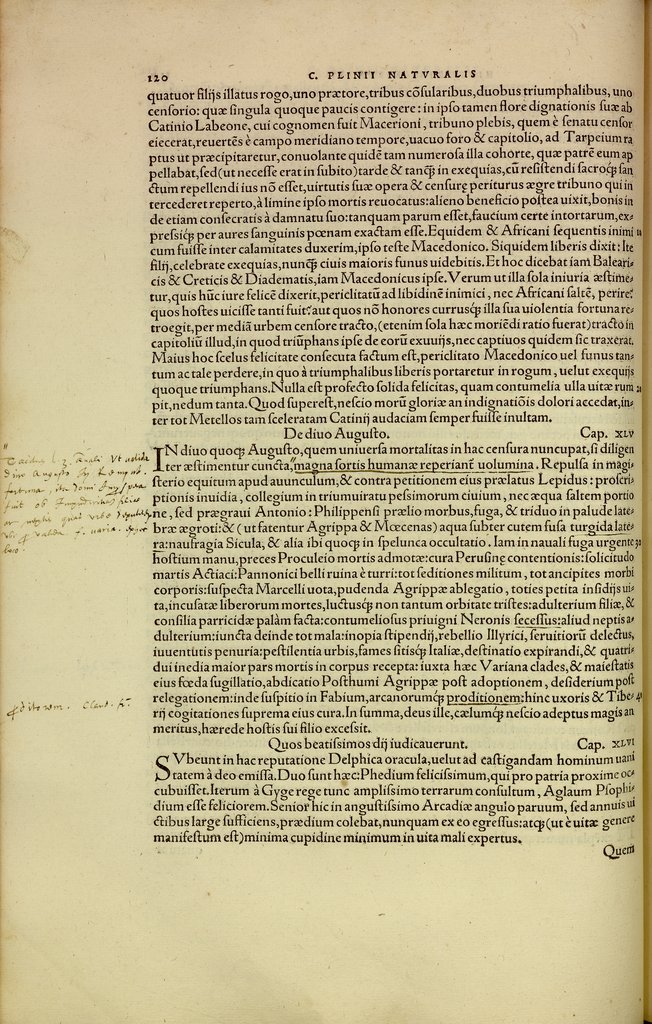 120 C. PLINII NATVRALIS
quatuor filijs illatus rogo,uno prætore,tribus cõsularibus,duobus triumphalibus, uno
censorio: quæ singula quoque paucis contigere: in ipso tamen flore dignationis suæ ab
Catinio Labeone, cui cognomen fuit Macerioni, tribuno plebis, quem è senatu censor
eiecerat,reuertẽs è campo meridiano tempore,uacuo foro & capitolio, ad Tarpeium ra
ptus ut præcipitaretur,conuolante quidẽ tam numerosa illa cohorte, quæ patrẽ eum ap
pellabat,sed(ut necesse erat in subito)tarde & tanq̃ in exequias,cũ resistendi sacroq̃ san
ctum repellendi ius nõ esset,uirtutis suæ opera & censuræ periturus ægre tribuno qui in
tercederet reperto,à limine ipso mortis reuocatus:alieno beneficio postea uixit,bonis in
de etiam consecratis à damnatu suo:tanquam parum esset,faucium certe intortarum,ex=
pressiq̃ per aures sanguinis pœnam exactam esse.Equidem & Africani sequentis inimi
cum fuisse inter calamitates duxerim,ipso teste Macedonico. Siquidem liberis dixit: Ite
filij,celebrate exequias,nunq̃ ciuis maioris funus uidebitis.Et hoc dicebat iam Baleari=
cis & Creticis & Diadematis,iam Macedonicus ipse.Verum ut illa sola iniuria æstime=
tur,quis hũc iure felicẽ dixerit,periclitatũ ad libidinẽ inimici, nec Africani saltẽ, perire?
quos hostes uicisse tanti fuit?aut quos nõ honores currusq̃ illa sua uiolentia fortuna re=
troegit,per mediã urbem censore tracto,(etenim sola hæc moriẽdi ratio fuerat)tracto in
capitoliũ illud,in quod triũphans ipse de eorũ exuuijs,nec captiuos quidem sic traxerat.
Maius hoc scelus felicitate consecuta factum est,periclitato Macedonico uel funus tan=
tum ac tale perdere,in quo à triumphalibus liberis portaretur in rogum, uelut exequijs
quoque triumphans.Nulla est profecto solida felicitas, quam contumelia ulla uitæ rum
pit,nedum tanta.Quod superest,nescio morũ gloriæ an indignatiõis dolori accedat,in=
ter tot Metellos tam sceleratam Catinij audaciam semper fuisse inultam.
De diuo Augusto. Cap. XLV
IN diuo quoq̃ Augusto,quem uniuersa mortalitas in hac censura nuncupat,si diligen
ter æstimentur cuncta,magna sortis humanæ reperiant̃ uolumina. Repulsa in magi
sterio equitum apud auunculum,& contra petitionem eius prælatus Lepidus: proscri=
ptionis inuidia, collegium in triumuiratu pessimorum ciuium, nec æqua saltem portio
ne, sed prægraui Antonio: Philippensi prælio morbus,fuga, & triduo in palude late=
bræ ægroti:& (ut fatentur Agrippa & Mœcenas) aqua subter cutem fusa turgida late=
ra:naufragia Sicula, & alia ibi quoq̃ in spelunca occultatio. Iam in nauali fuga urgente
hostium manu,preces Proculeio mortis admotæ:cura Perusinę contentionis:solicitudo
martis Actiaci:Pannonici belli ruina è turri:tot seditiones militum, tot ancipites morbi
corporis:suspecta Marcelli uota,pudenda Agrippæ ablegatio, toties petita insidijs ui=
ta,incusatæ liberorum mortes,luctusq̃ non tantum orbitate tristes:adulterium filiæ, &
consilia parricidæ palàm facta:contumeliosus priuigni Neronis secessus:aliud neptis a=
dulterium:iuncta deinde tot mala:inopia stipendij,rebellio Illyrici, seruitiorũ delectus,
iuuentutis penuria:pestilentia urbis,fames sitisq̃ Italiæ,destinatio expirandi,& quatri=
dui inedia maior pars mortis in corpus recepta: iuxta hæc Variana clades,& maiestatis
eius fœda sugillatio,abdicatio Posthumi Agrippæ post adoptionem, desiderium post
relegationem:inde suspitio in Fabium,arcanorumq̃ proditionem:hinc uxoris & Tibe=
rij cogitationes suprema eius cura.In summa,deus ille,cælumq̃ nescio adeptus magis an
meritus,hærede hostis sui filio excessit.
proditorem. Claud. f.
Quos beatissimos dij iudicauerunt. Cap. XLVI
SVbeunt in hac reputatione Delphica oracula,uelut ad castigandam hominum uani
tatem à deo emissa.Duo sunt hæc:Phedium felicissimum,qui pro patria proxime oc=
cubuisset.Iterum à Gyge rege tunc amplissimo terrarum consultum, Aglaum Psophi=
dium esse feliciorem.Senior hic in angustissimo Arcadiæ angulo paruum, sed annuis ui
ctibus large sufficiens,prædium colebat,nunquam ex eo egressus:atq̃(ut è uitæ genere
manifestum est)minima cupidine minimum in uita mali expertus.
Quem